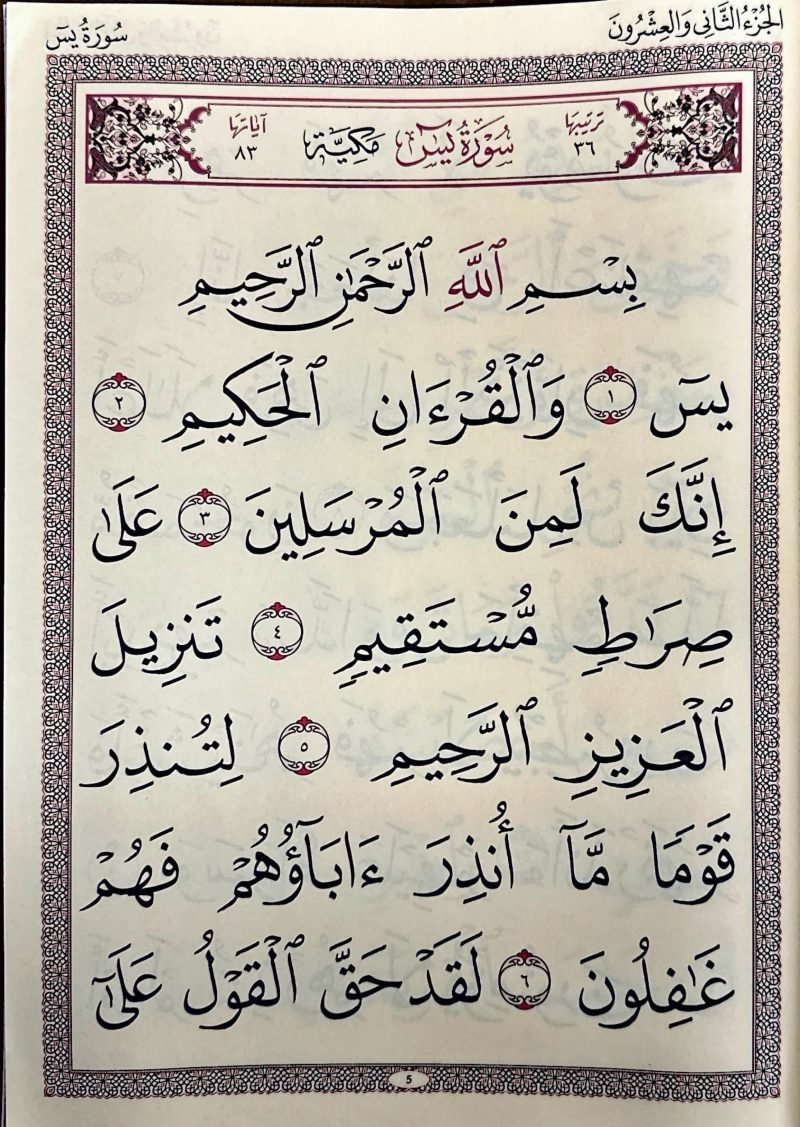 الجُزْءُ الثَّانِي وَالعِشْرُونَ
سُورَةُ يسٓ
ترتيبها
٣٦
سُورَةُ يسٓ
مَكِيَّة
آياتها
٨٣
بِسْمِ ٱللَّهِ ٱلرَّحْمَٰنِ ٱلرَّحِيمِ
يسٓ ١ وَٱلْقُرْءَانِ ٱلْحَكِيمِ ٢
إِنَّكَ لَمِنَ ٱلْمُرْسَلِينَ ٣ عَلَىٰ
صِرَٰطٍ مُّسْتَقِيمٍ ٤ تَنزِيلَ
ٱلْعَزِيزِ ٱلرَّحِيمِ ٥ لِتُنذِرَ
قَوْمًا مَّآ أُنذِرَ ءَابَآؤُهُمْ فَهُمْ
غَٰفِلُونَ ٦ لَقَدْ حَقَّ ٱلْقَوْلُ عَلَىٰٓ
5